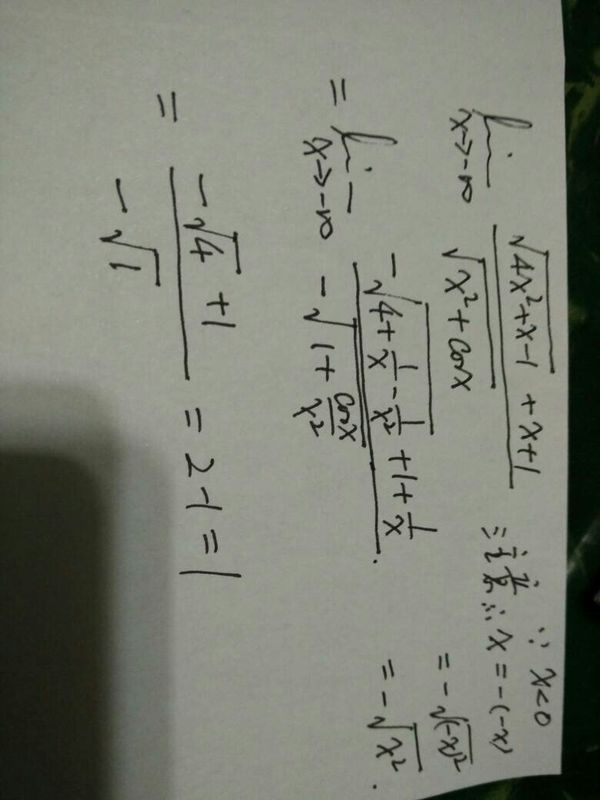 lim x→-∞ (√(4x²+x-1) + x+1) / √(x²+cosx)
= lim x→-∞ (-√(4+1/x-1/x²) + 1 + 1/x) / (-√(1+cosx/x²)).
= (-√4 + 1) / (-√1) = 2-1 = 1
∵ x<0
注意∴ x = -(-x)
= -√(-x)²
= -√x².